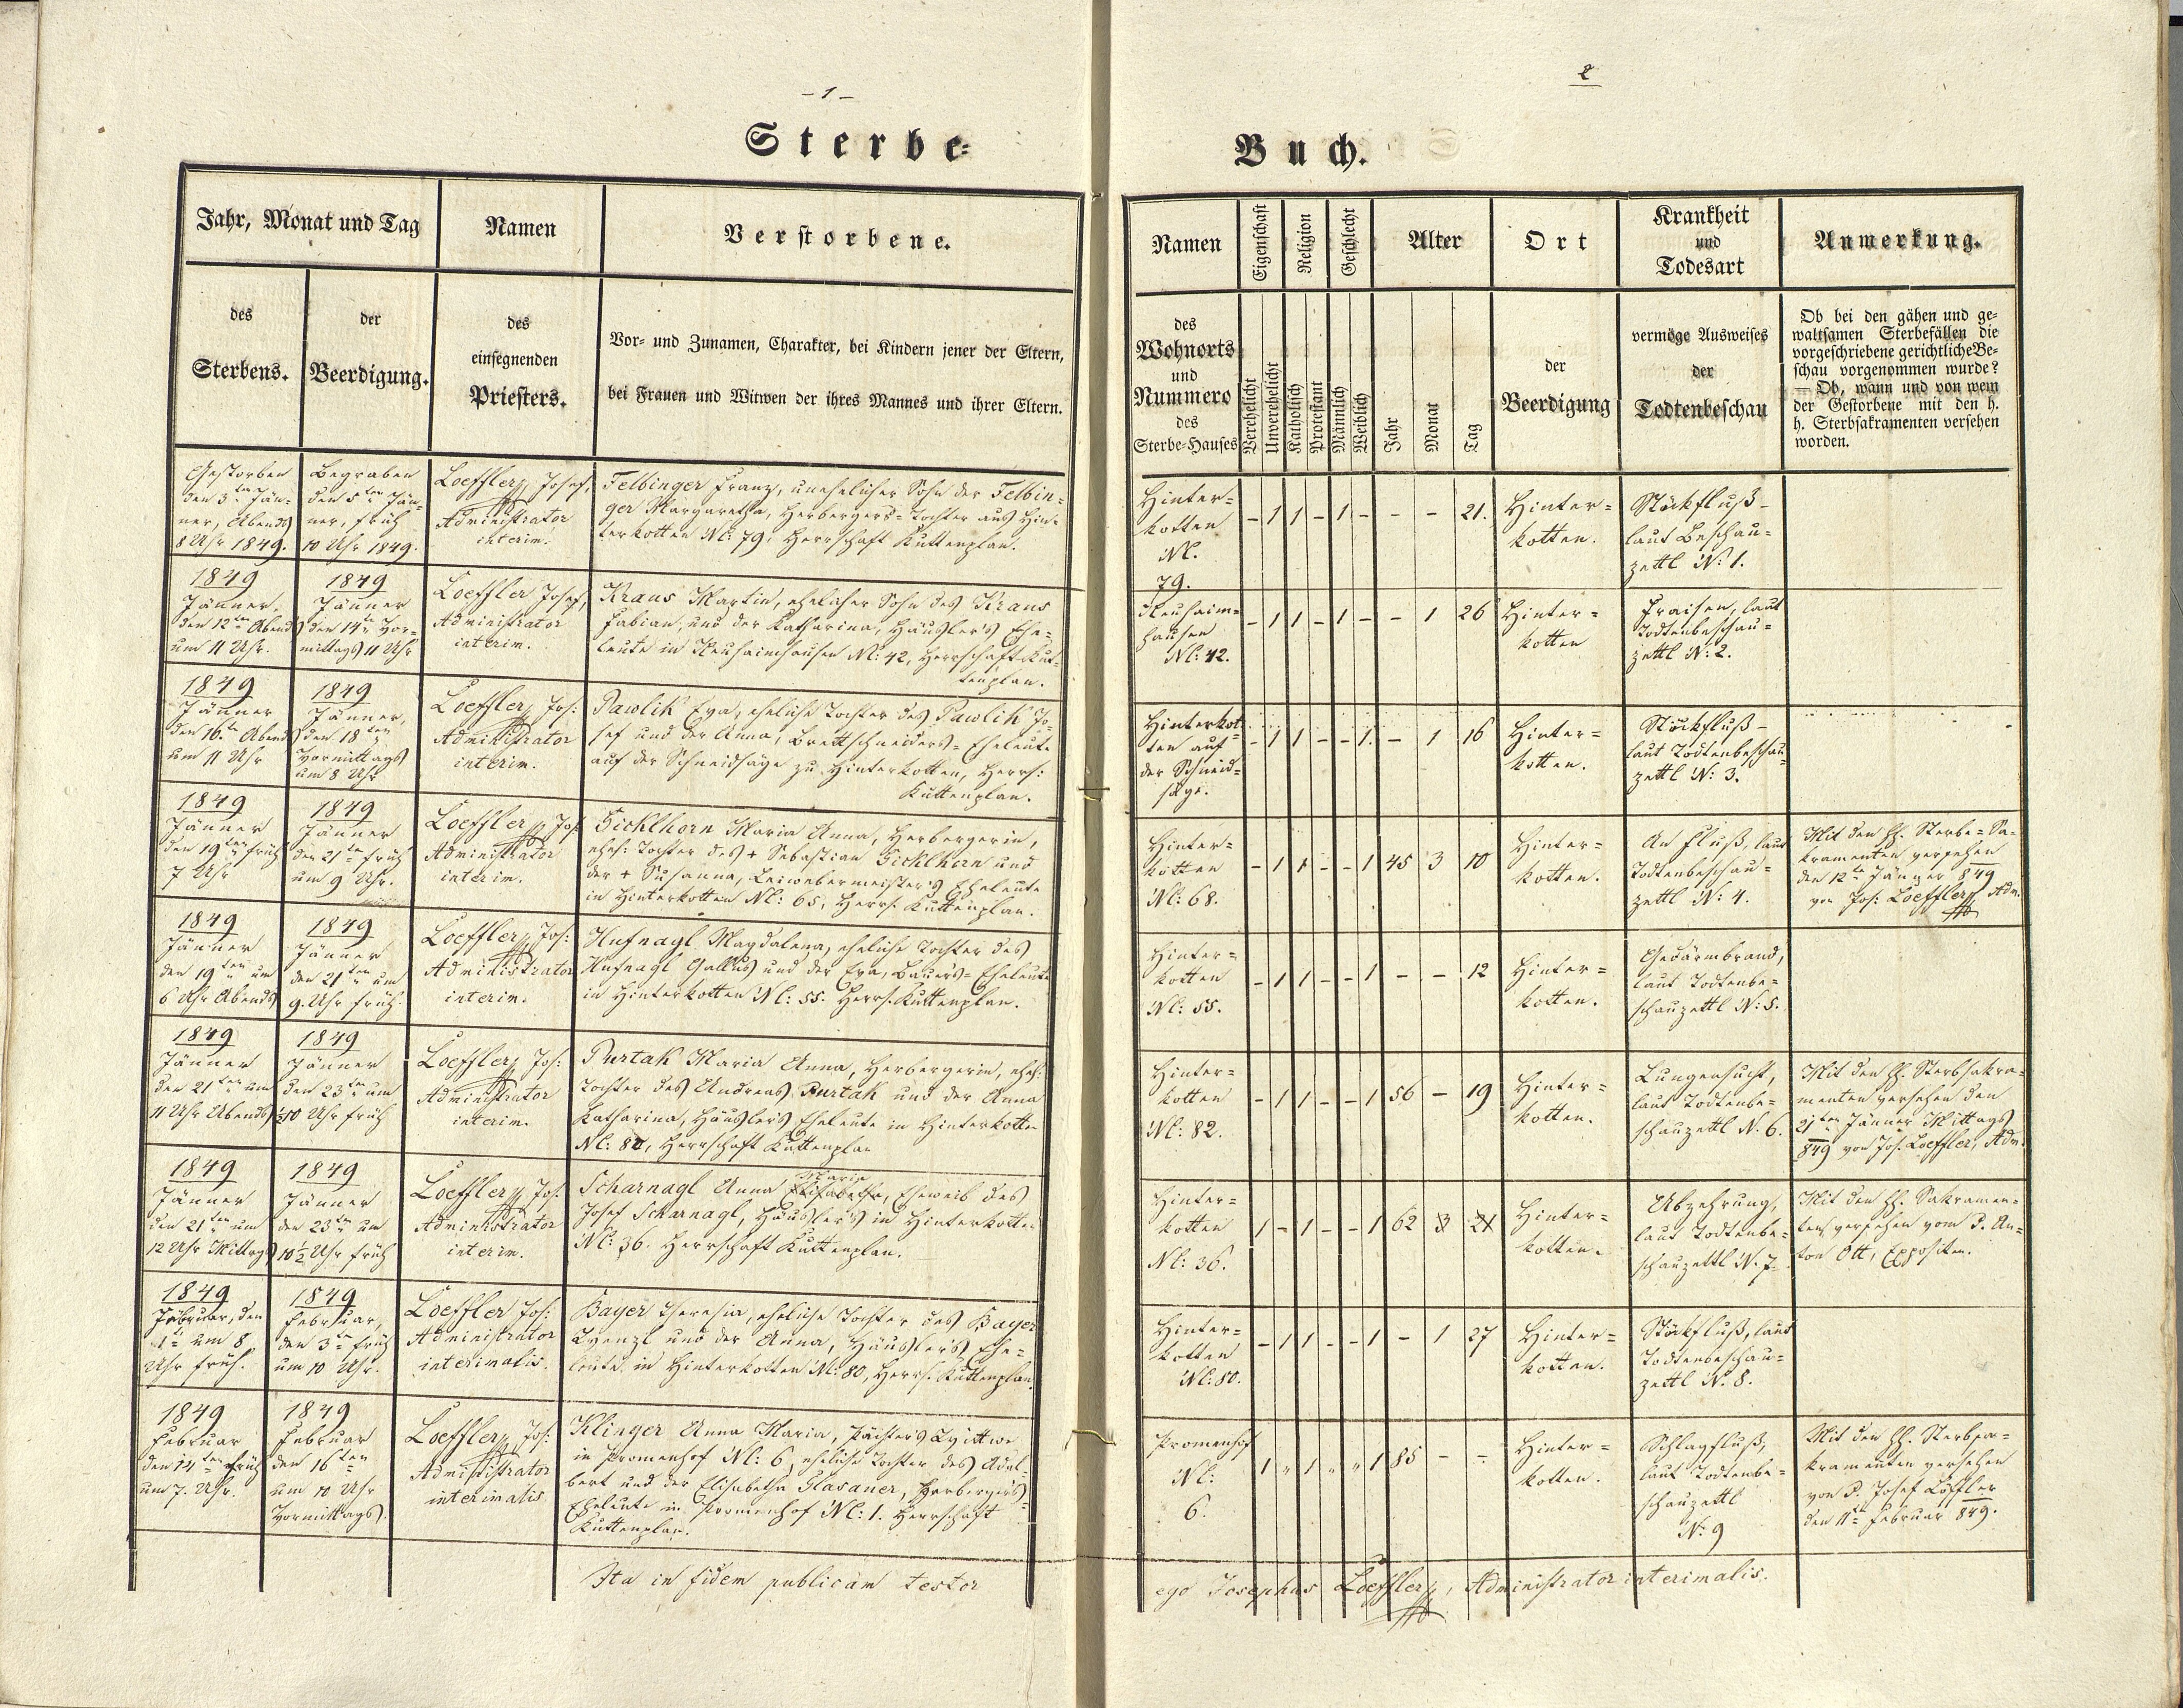 - 1 -
Sterbe-
Jahr, Monat und Tag
Namen
Verstorbene.
des
Sterbens.
der
Beerdigung.
des
einsegnenden
Priesters.
Vor- und Zunamen, Charakter, bei Kindern jener der Eltern,
bei Frauen und Witwen der ihres Mannes und ihrer Eltern.
Gestorben
den 3ten Jän-
ner, Abends
8 Uhr 1849.
Begraben
den 5ten Jän-
ner, früh
10 Uhr 1849.
Loeffler Josef,
Administrator
interim.
Felbinger Franz, unehelicher Sohn der Felbin-
ger Margaretha, Herbergers-Tochter aus Hin-
terkotten Nl: 79, Herrschaft Kuttenplan.
1849
Jänner,
den 12ten Abends
um 11 Uhr.
1849
Jänner
den 14ten Vor-
mittags 11 Uhr
Loeffler Josef,
Administrator
interim.
Kraus Martin, ehelicher Sohn des Kraus
Fabian, und der Katharina, Häusler's Ehe-
leute in Neuhaimhausen Nl: 42, Herrschaft Kut-
tenplan.
1849
Jänner
den 16ten Abends
um 11 Uhr
1849
Jänner,
den 18ten
Vormittags
um 8 Uhr
Loeffler Jos:
Administrator
interim.
Pawlik Eva, eheliche Tochter des Pawlik Jo-
sef und der Anna, Brettschneiders-Eheleute
auf der Schneidsäge zu Hinterkotten, Herrs:
Kuttenplan.
1849
Jänner
den 19ten früh
7 Uhr
1849
Jänner
den 21ten früh
um 9 Uhr.
Loeffler Jos
Administrator
interim.
Ficklhorn Maria Anna, Herbergerin,
ehel: Tochter des + Sebastian Ficklhorn und
der + Susanna, Leinwebermeister's Eheleute
in Hinterkotten Nl: 65, Herrs. Kuttenplan.
1849
Jänner
den 19ten um
6 Uhr Abends
1849
Jänner
den 21ten um
9. Uhr früh.
Loeffler Jos:
Administrator
interim.
Hufnagl Magdalena, eheliche Tochter des
Hufnagl Gallus und der Eva, Bauers-Eheleute
in Hinterkotten Nl: 55. Herrs. Kuttenplan.
1849
Jänner
den 21ten um
11 Uhr Abends
1849
Jänner
den 23ten um
½10 Uhr früh
Loeffler Jos:
Administrator
interim.
Purtak Maria Anna, Herbergerin, ehel:
Tochter des Andreas Purtak und der Anna
Katharina, Häuslers Eheleute in Hinterkotten
Nl: 82, Herrschaft Kuttenplan
1849
Jänner
den 21ten um
12 Uhr Mittags
1849
Jänner
den 23ten um
10½ Uhr früh
Loeffler Jos.
Administrator
interim.
Maria
Scharnagl Anna Elisabetha, Eheweib des
Josef Scharnagl, Häusler's in Hinterkotten
Nl: 36. Herrschaft Kuttenplan.
1849
Februar, den
1ten um 8
Uhr früh.
1849
Februar,
den 3ten früh
um 10 Uhr.
Loeffler Jos:
Administrator
interimalis.
Bayer Theresia, eheliche Tochter des Bayer
Wenzl und der Anna, Häusler's Ehe-
leute in Hinterkotten Nl: 80, Herrs. Kuttenplan.
1849
Februar
den 14ten früh
um 7. Uhr.
1849
Februar
den 16ten
um 10 Uhr
Vormittags.
Loeffler Jos:
Administrator
interimalis
Klinger Anna Maria, Pächter's Wittwe
in Promenhof Nl: 6, eheliche Tochter des Adal-
bert und der Elisabetha Glasaner, Herberger's
Eheleute in Promenhof Nl: 1. Herrschaft
Kuttenplan.
Ita in fidem publicam testor
2
Buch.
Namen
Eigenschaft
Religion
Geschlecht
Alter
Ort
Krankheit
und
Todesart
Anmerkung.
des
Wohnorts
und
Nummero
des
Sterbe-Hauses
Verehelicht
Unverehelicht
Katholisch
Protestant
Männlich
Weiblich
Jahr
Monat
Tag
der
Beerdigung
vermöge Ausweises
der
Todtenbeschau
Ob bei den gähen und ge-
waltsamen Sterbefällen die
vorgeschriebene gerichtliche Be-
schau vorgenommen wurde?
— Ob, wann und von wem
der Gestorbene mit den h.
h. Sterbsakramenten versehen
worden.
Hinter-
kotten
Nl.
79.
- 1 1 - 1 - - - 21.
Hinter-
kotten.
Stöckfluß-
laut Beschau-
zettl N: 1.
Neuhaim-
hausen
Nl: 42.
- 1 1 - 1 - - 1 26
Hinter-
kotten
Fraisen, laut
Todtenbeschau-
zettl N: 2.
Hinterkot-
ten auf
der Schneid-
säge.
- 1 1 - - 1 - 1 16
Hinter-
kotten.
Stöckfluß-
laut Todtenbeschau-
zettl N: 3.
Hinter-
kotten
Nl: 68.
- 1 1 - - 1 45 3 10
Hinter-
kotten.
An Fluß, laut
Todtenbeschau-
zettl N: 4.
Mit den hh. Sterbe-Sa-
kramenten versehen
den 12ten Jänner 849
von Jos: Loeffler, Adm.
Hinter-
kotten
Nl: 55.
- 1 1 - - 1 - - 12
Hinter-
kotten.
Gedärmbrand,
laut Todtenbe-
schauzettl N: 5.
Hinter-
kotten
Nl: 82.
- 1 1 - - 1 56 - 19
Hinter-
kotten.
Lungensucht,
laut Todtenbe-
schauzettl N. 6.
Mit den hh. Sterbsakra-
menten versehen den
21ten Jänner Mittags
849 von Jos. Loeffler, Adm.
Hinter-
kotten
Nl: 36.
1 - 1 - - 1 62 3 21
Hinter-
kotten.
Abzehrung,
laut Todtenbe-
schauzettl N. 7.
Mit den hh. Sakramen-
ten versehen vom P. An-
ton Ott, Expositen.
Hinter-
kotten
Nl: 80.
- 1 1 - - 1 - 1 27
Hinter-
kotten.
Stöckfluß, laut
Todtenbeschau-
zettl N. 8.
Promenhof
Nl:
6.
1 " 1 " " 1 85 - -
Hinter-
kotten.
Schlagfluß,
laut Todtenbe-
schauzettl
N: 9
Mit den hh. Sterbsa-
kramenten versehen
von P. Josef Löffler
den 11ten Februar 849.
ego Josephus Loeffler, Administrator interimalis.